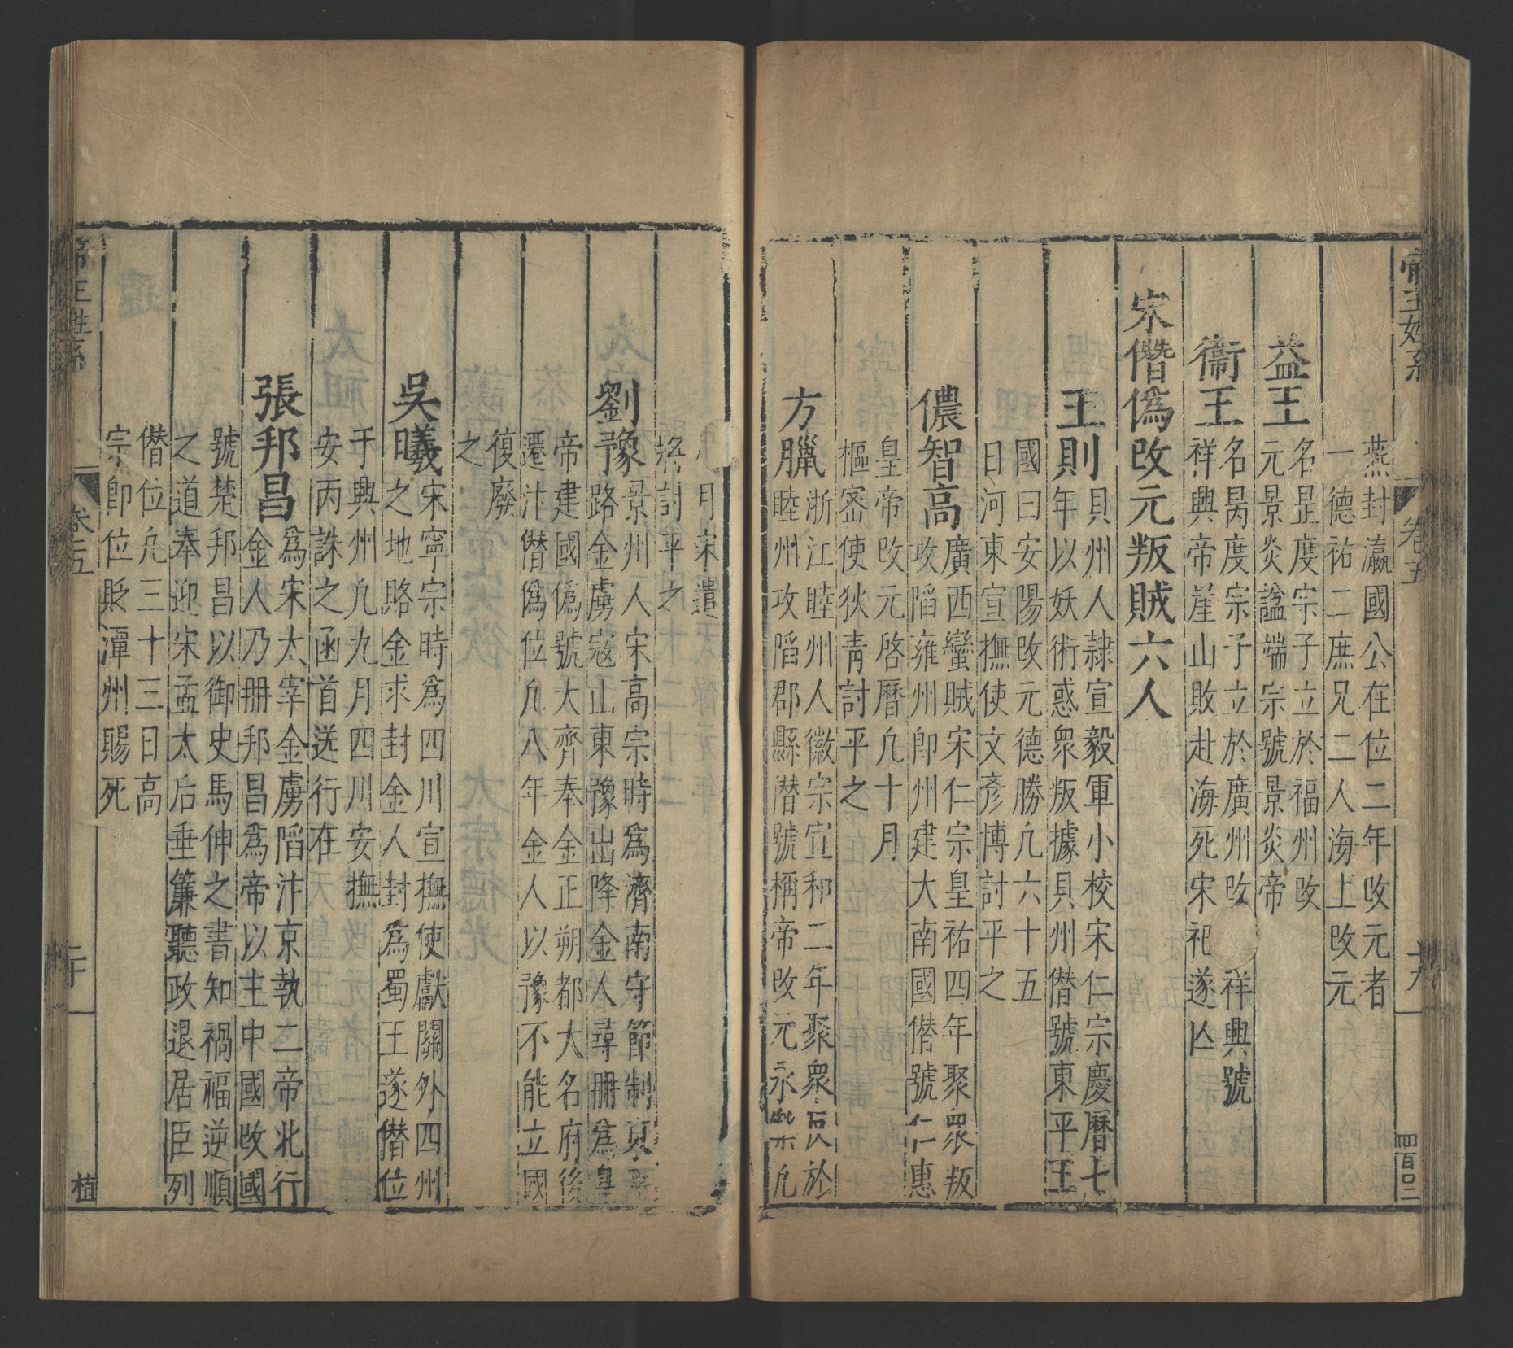 帝王姓系 卷五 十九 四百口二
燕封瀛國公在位二年改元者
一德祐二庶兄二人海上改元
益王
名昰度宗子立於福州改
元景炎謚端宗號景炎帝
衞王
名昺度宗子立於廣州改 祥興號
祥興帝崖山敗赴海死宋祀遂亾
宋僭僞改元叛賊六人
王則
貝州人隸宣毅軍小校宋仁宗慶曆七
年以妖術惑衆叛據貝州僭號東平王
國曰安陽改元德勝凢六十五
日河東宣撫使文彥博討平之
儂智高
廣西蠻賊宋仁宗皇祐四年聚衆叛
攻䧟雍州卽州建大南國僭號仁惠
皇帝改元啓曆凢十月
樞密使狄靑討平之
方臘
浙江睦州人徽宗宣和二年聚衆反於
睦州攻䧟郡縣潛號稱帝改元永樂凢
月宋遣
將討平之
劉豫
景州人宋高宗時爲濟南守節制
路金虜寇山東豫出降金人尋冊爲皇
帝建國僞號大齊奉金正朔都大名府後
遷汴僭僞位凢八年金人以豫不能立國
復廢
之
吳曦
宋寧宗時爲四川宣撫使獻關外四州
之地賂金求封金人封爲蜀王遂僭位
于興州凢九月四川安撫
安丙誅之函首送行在
張邦昌
爲宋太宰金虜䧟汴京執二帝北行
金人乃冊邦昌爲帝以主中國改國
號楚邦昌以御史馬伸之書知禍福逆順
之道奉迎宋孟太后垂簾聽政退居臣列
僭位凢三十三日高
宗卽位貶潭州賜死
帝王姓系 卷五 二十 植